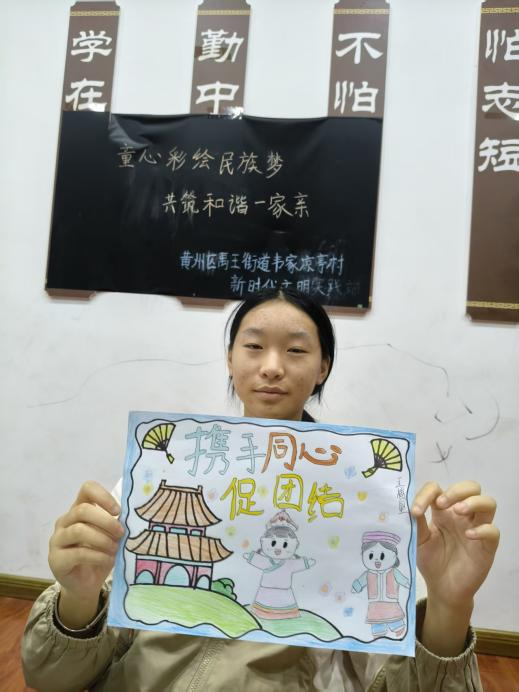 学在
勤中
不怕
怕志短
童心彩绘民族梦
共筑和谐一家亲
黄州区禹王街道韦家凉亭村
新时代文明实践站
携手同心
促团结